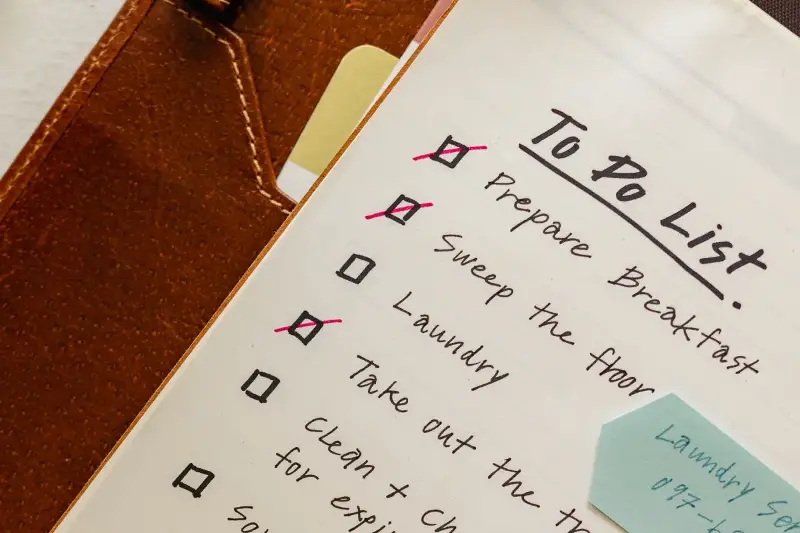 To Do List.
Prepare Breakfast
Sweep the floor
Laundry
Take out the
clean +
for
Laundry